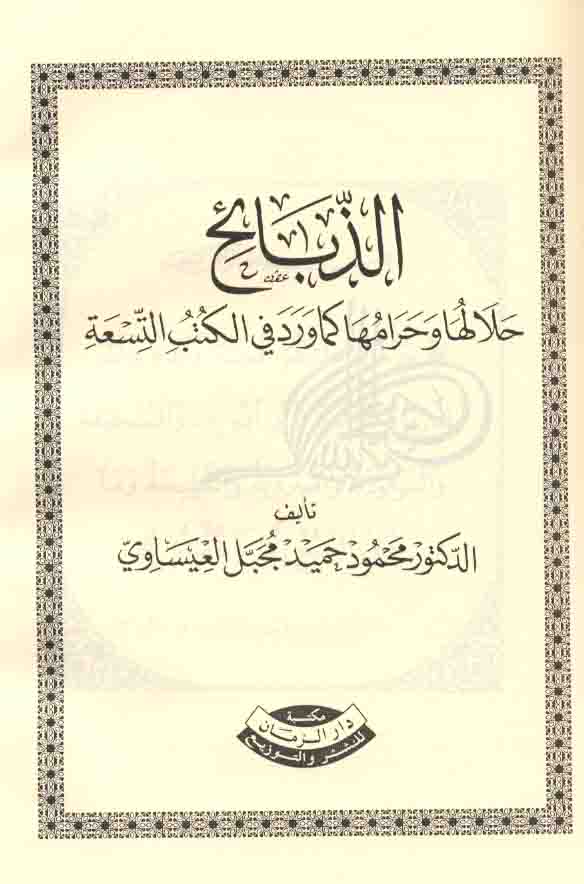 الذَّبَائِح
حَلَالُهَا وَحَرَامُهَا كَمَا وَرَدَ فِي الكُتُبِ التِّسْعَةِ
تأليف
الدكتور محمود حميد مجبل العيساوي
مكتبة
دار الزمان
للنشر والتوزيع